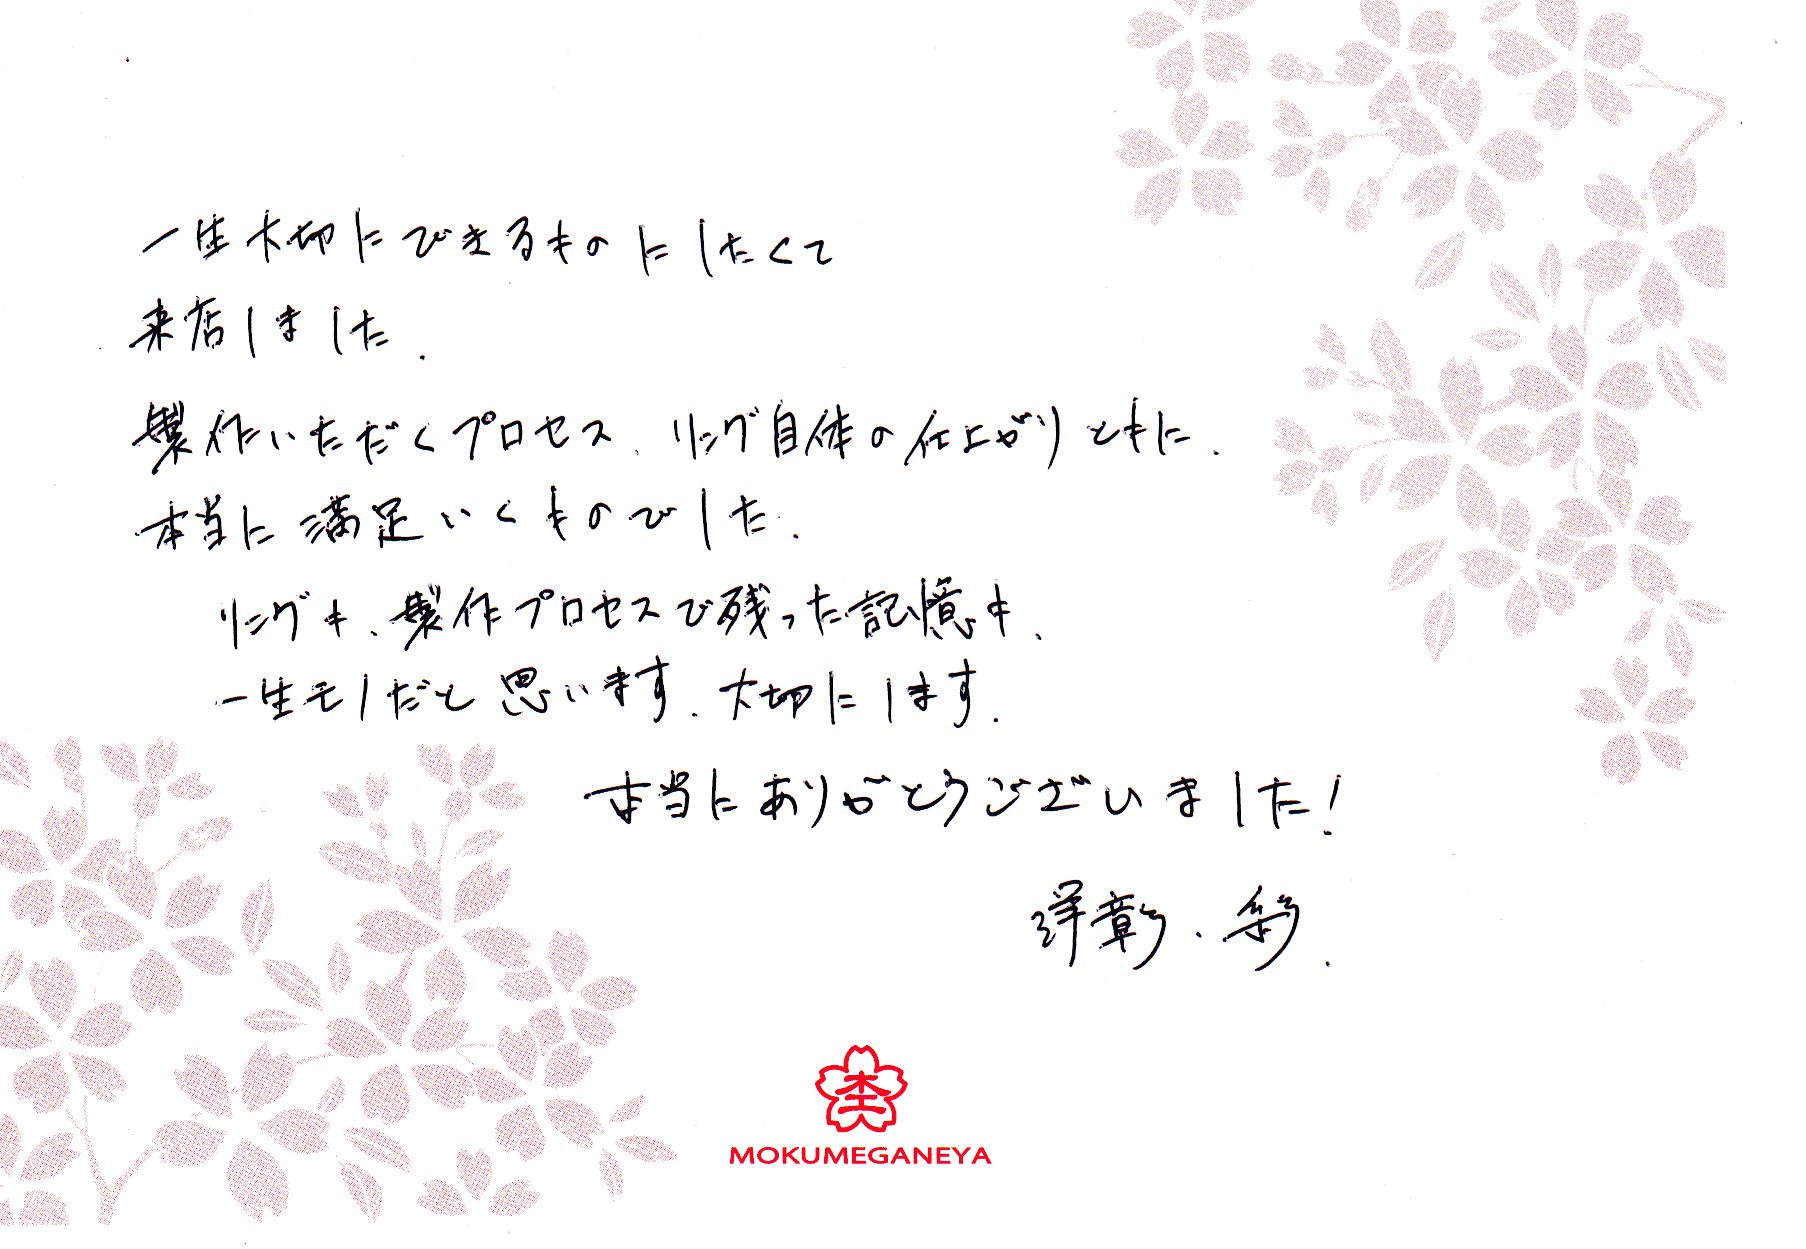 一生大切にできるものにしたくて
来店しました.
製作いただくプロセス、リング自体の仕上がりともに、
本当に満足いくものでした.
リングも、製作プロセスで残った記憶も、
一生モノだと思います. 大切にします.
本当にありがとうございました!
洋彰・彩.
MOKUMEGANEYA